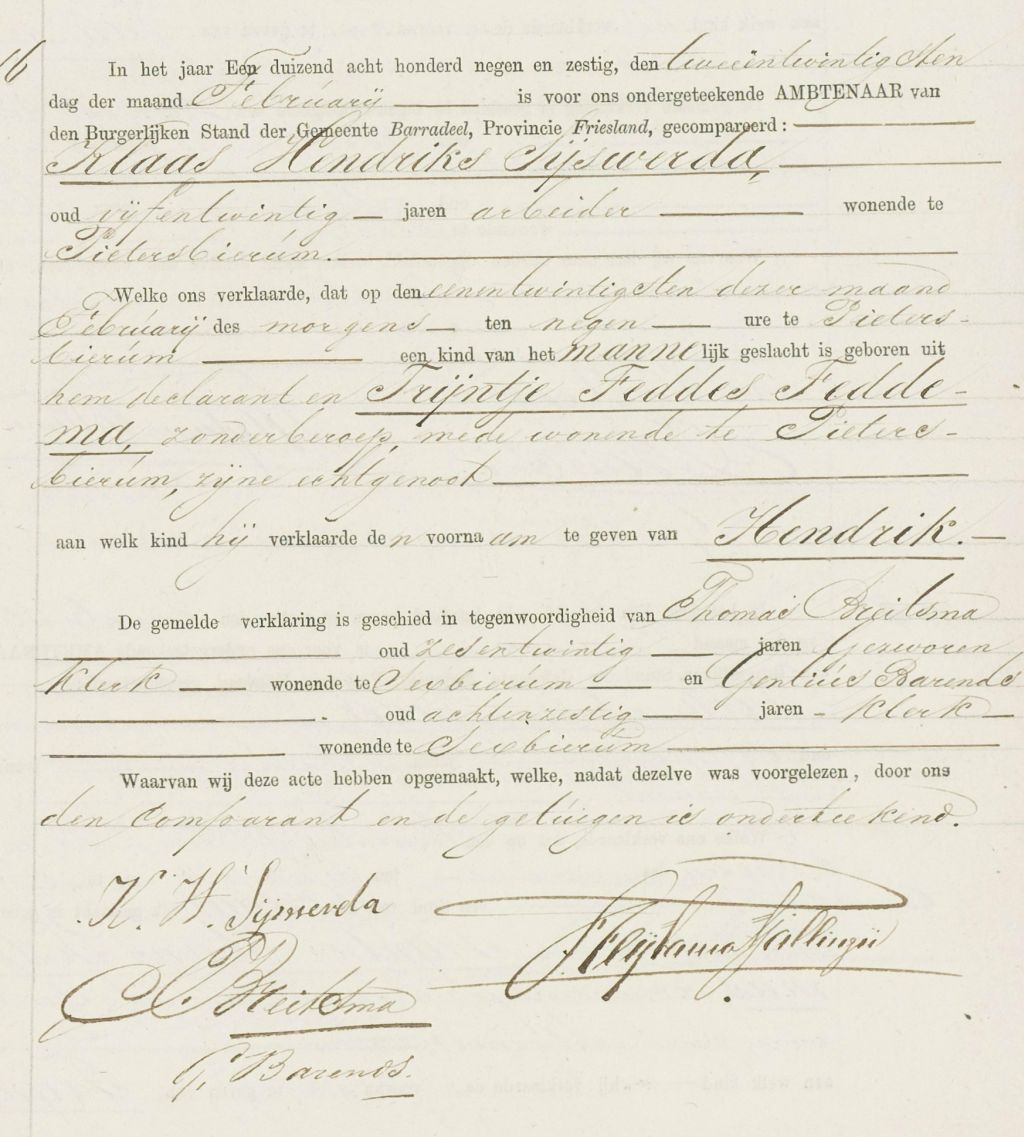 16
In het jaar Een duizend acht honderd negen en zestig, den tweeëntwintigsten
dag der maand Februarij is voor ons ondergeteekende AMBTENAAR van
den Burgerlijken Stand der Gemeente Barradeel, Provincie Friesland, gecompareerd:
Klaas Hendriks Sijswerda,
oud vijfentwintig jaren arbeider wonende te
Pietersbierum.
Welke ons verklaarde, dat op den eenentwintigsten dezer maand
Februarij des morgens ten negen ure te Pieters-
bierum een kind van het mannelijk geslacht is geboren uit
hem declarant en Trijntje Feddes Fedde-
ma, zonder beroep, mede wonende te Pieters-
bierum, zijne echtgenoot
aan welk kind hij verklaarde den voornaam te geven van Hendrik.
De gemelde verklaring is geschied in tegenwoordigheid van Thomas Breitsma
oud zesentwintig jaren Gezworen
Klerk wonende te Sexbierum en Gentius Barends
oud achtenzestig jaren Klerk
wonende te Sexbierum
Waarvan wij deze acte hebben opgemaakt, welke, nadat dezelve was voorgelezen, door ons
den comparant en de getuigen is onderteekend.
K. H. Sijswerda
Breitsma
G. Barends.